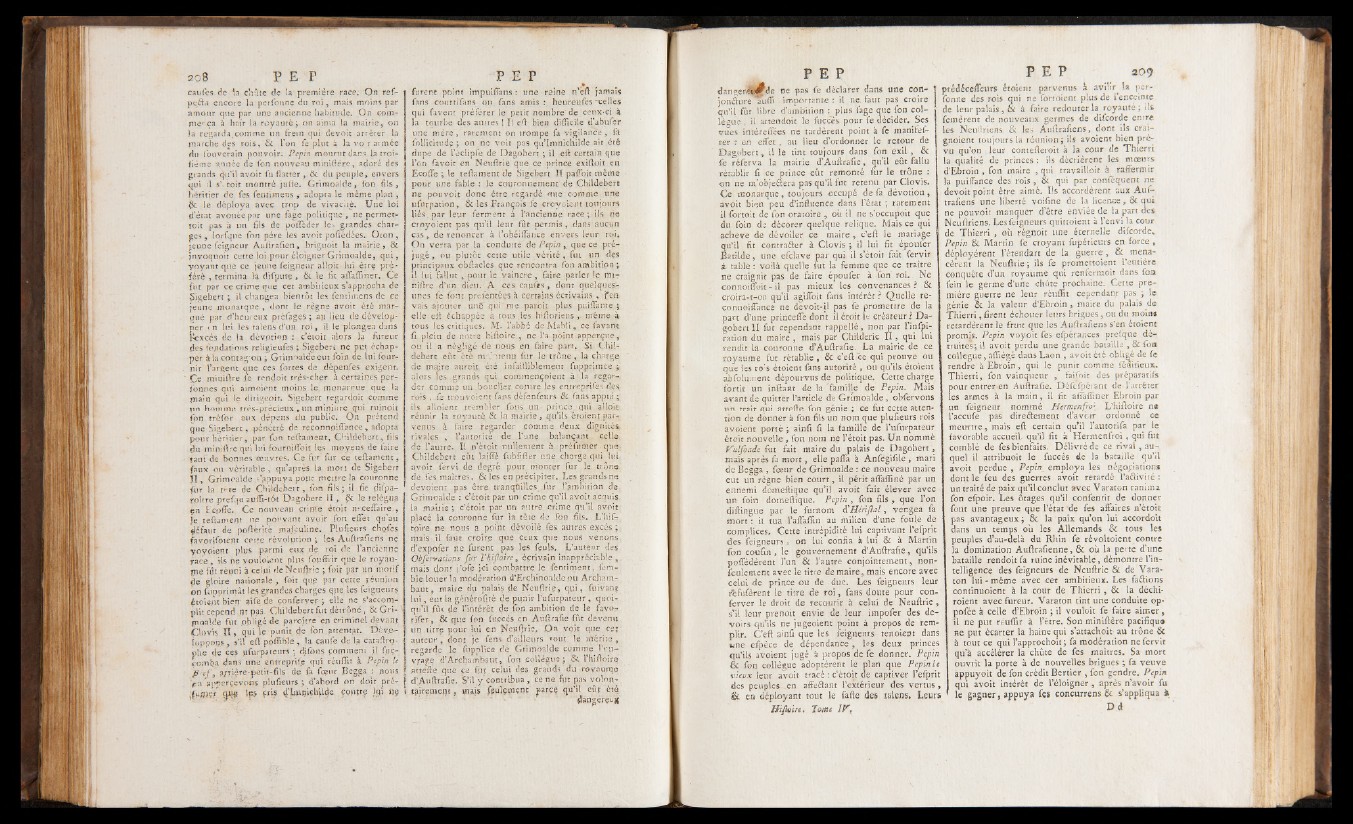 208 P E P P E P
causes de la chûte de la première race. On res-
pecta encore la personne du roi, mais moins par
amour que par une ancienne habitude. On com-
mença à haïr la royauté; on aima la mairie, on
la regarda comme un frein qui devoit arrêter la
marche des rois, & l'on se plut à la voir armée
du souverain pouvoir. Pepin mourut dans la troi-
sième année de son nouveau ministère, adoré des
grands qu'il avoit su flatter, & du peuple, envers
qui il s'étoit montré juste. Grimoalde, son fils,
héritier de ses sentimens, adopta le même plan,
& le déploya avec trop de vivacité. Une loi
d'état avouée par une sage politique, ne permet-
toit pas à un fils de posséder les grandes char-
ges, lorsque son père les avoit possédées. Oton,
jeune seigneur Austrasien, briguoit la mairie, &
invoquoit cette loi pour éloigner Grimoalde, qui,
voyant que ce jeune seigneur alloit lui être pré-
féré, termina la dispute, & le fit assassiner. Ce
fut par ce crime que cet ambitieux s'approcha de
Sigebert; il changea bientôt les sentimens de ce
jeune monarque, dont le règne avoit été mar-
qué par d'heureux présages; au lieu de dévelop-
per en lui les talens d'un roi, il le plongea dans
l'excès de la dévotion: c'étoit alors la fureur
des fondations religieuses; Sigebert ne put échap-
per à la contagion, Grimoalde eut soin de lui four-
nir l'argent que ces sortes de dépenses exigent.
Ce ministre se rendoit très-cher à certaines per-
sonnes qui aimoient moins le monarque que la
main qui le dirigeoit. Sigebert regardoit comme
un homme très-précieux, un ministre qui ruinoit
son trésor aux dépens du public. On prétend
que Sigebert, pénétré de reconnoissance, adopta
pour héritier, par son testament, Childebert, fils
du ministre qui lui fournissoit les moyens de faire
tant de bonnes œuvres. Ce fut sur ce testament,
faux ou véritable, qu'après la mort de Sigebert
II, Grimoalde s'appuya pour mettre la couronne
sur la tête de Childebert, son fils; il fit dispa-
roître presqu'aussi-tôt Dagobert II, & le relégua
en Ecosse. Ce nouveau crime étoit nécessaire,
le testament ne pouvant avoir son effet qu'au
défaut de postérité masculine. Plusieurs choses
favorisoient cette révolution; les Austrasiens ne
voyoient plus parmi eux de roi de l'ancienne
race, ils ne vouloient plus souffrir que le royau-
me fût réuni à celui de Neustrie; soit par un motif
de gloire nationale, soit que par cette réunion
on supprimât les grandes charges que les seigneurs
étoient bien aise de conserver; elle ne s'accom-
plit cependant pas. Childebert fut détrôné, & Gri-
moalde fut obligé de paroître en criminel devant
Clovis II, qui le punit de son attentat. Déve-
loppons, s'il est possible, la cause de la catastro-
phe de ces usurpateurs; disons comment il suc-
comba dans une entreprise qui réussit à Pepin le
Bref, arrière-petit-fils de sa sœur Begga: nous
en appercevons plusieurs; d'abord on doit pré-
sumer que les cris d'Imnichilde contre lui ne
furent point impuissans: une reine n'est jamais
sans courtisans ou sans amis: heureuses celles
qui savent préférer le petit nombre de ceux-ci à
la tourbe des autres! Il est bien difficile d'abuser
une mère, rarement on trompe sa vigilance, sa
sollicitude; on ne voit pas qu'Imnichilde ait été
dupe de l'éclipse de Dagobert; il est certain que
l'on savoit en Neustrie que ce prince existoit en
Ecosse; le testament de Sigebert II passoit même
pour une fable: le couronnement de Childebert
ne pouvoit donc être regardé que comme une
usurpation, & les François se croyoient toujours
liés par leur serment à l'ancienne race; ils ne
croyoient pas qu'il leur fût permis, dans aucun
cas, de renoncer à l'obéissance envers leur roi.
On verra par la conduite de Pepin, que ce pré-
jugé, ou plutôt cette utile vérité, fut un des
principaux obstacles que rencontra son ambition;
il lui fallut, pour le vaincre, faire parler le mi-
nistre d'un dieu. A ces causes, dont quelques-
unes se sont présentées à certains écrivains, j'en
vais ajouter une qui me paroît plus puissante;
elle est échappée à tous les historiens, même à
tous les critiques. M. l'abbé de Mabli, ce savant
si plein de notre histoire, ne l'a point apperçue,
ou il a négligé de nous en faire part. Si Chil-
debert eût été maintenu sur le trône, la charge
de maire auroit été infailliblement supprimée;
alors les grands qui commençoient à la regar-
der comme un bouclier contre les entreprises des
rois, se trouvoient sans défenseurs & sans appui;
ils alloient trembler sous un prince qui alloit
réunir la royauté & la mairie, qu'ils étoient par-
venus à faire regarder comme deux dignités
rivales, l'autorité de l'une balançant celle
de l'autre. Il n'étoit nullement à présumer que
Childebert eût laissé subsister une charge qui lui
avoit servi de degré pour monter sur le trône
de ses maîtres, & les en précipiter. Les grands ne
devoient pas être tranquilles sur l'ambition de
Grimoalde: c'étoit par un crime qu'il avoit acquis
la mairie; c'étoit par un autre crime qu'il avoit
placé la couronne sur la tête de son fils. L'his-
toire ne nous a point dévoilé ses autres excès;
mais il faut croire que ceux que nous venons
d'exposer ne furent pas les seuls. L'auteur des
Observations sur l'histoire, écrivain inappréciable,
mais dont j'ose ici combattre le sentiment, sem-
ble louer la modération d'Erchinoalde ou Archam-
baut, maire du palais de Neustrie, qui, suivant
lui, eut la générosité de punir l'usurpateur, quoi-
qu'il fût de l'intérêt de son ambition de le favo-
riser, & que son succès en Austrasie fût devenu
un titre pour lui en Neustrie. On voit que cet
auteur, dont je sens d'ailleurs tout le mérite,
regarde le supplice de Grimoalde comme l'ou-
vrage d'Archambaut, son collègue; & l'histoire
atteste que ce fut celui des grands du royaume
d'Austrasie. S'il y contribua, ce ne fut pas volon-
tairement, mais seulement parce qu'il eût été
dangereux
P E P P E P 209
dangereux de ne pas se déclarer dans une con-
joncture aussi importante: il ne faut pas croire
qu'il fût libre d'ambition: plus sage que son col-
lègue, il attendoit le succès pour se décider. Ses
vues intéressées ne tardèrent point à se manifes-
ter: en effet, au lieu d'ordonner le retour de
Dagobert, il le tint toujours dans son exil, &
se réserva la mairie d'Austrasie, qu'il eût fallu
rétablir si ce prince eût remonté sur le trône:
on ne m'objectera pas qu'il fut retenu par Clovis.
Ce monarque, toujours occupé de sa dévotion,
avoit bien peu d'influence dans l'état; rarement
il sortoit de son oratoire, où il ne s'occupoit que
du soin de décorer quelque relique. Mais ce qui
achève de dévoiler ce maire, c'est le mariage
qu'il fit contracter à Clovis; il lui fit épouser
Batilde, une esclave par qui il s'étoit fait servir
à table: voilà quelle fut la femme que ce traître
ne craignit pas de faire épouser à son roi. Ne
connoissoit-il pas mieux les convenances? &
croira-t-on qu'il agissoit sans intérêt? Quelle re-
connoissance ne devoit-il pas se promettre de la
part d'une princesse dont il étoit le créateur? Da-
gobert II fut cependant rappellé, non par l'inspi-
ration du maire, mais par Childeric II, qui lui
rendit la couronne d'Austrasie. La mairie de ce
royaume fut rétablie, & c'est ce qui prouve ou
que les rois étoient sans autorité, ou qu'ils étoient
absolument dépourvus de politique. Cette charge
sortit un instant de la famille de Pepin. Mais
avant de quitter l'article de Grimoalde, observons
un trait qui atteste son génie; ce fut cette atten-
tion de donner à son fils un nom que plusieurs rois
avoient porté; ainsi si la famille de l'usurpateur
étoit nouvelle, son nom ne l'étoit pas. Un nommé
Vulfoade fut fait maire du palais de Dagobert,
mais après sa mort, elle passa à Ansegisile, mari
de Begga, sœur de Grimoalde: ce nouveau maire
eut un règne bien court, il périt assassiné par un
ennemi domestique qu'il avoit fait élever avec
un soin domestique. Pepin, son fils, que l'on
distingue par le surnom d'Héristal, vengea sa
mort: il tua l'assassin au milieu d'une foule de
complices. Cette intrépidité lui captivant l'esprit
des seigneurs, on lui confia à lui & à Martin
son cousin, le gouvernement d'Austrasie, qu'ils
possédèrent l'un & l'autre conjointement, non-
seulement avec le titre de maire, mais encore avec
celui de prince ou de duc. Les seigneurs leur
refusèrent le titre de roi, sans doute pour con-
server le droit de recourir à celui de Neustrie,
s'il leur prenoit envie de leur imposer des de-
voirs qu'ils ne jugeoient point à propos de rem-
plir. C'est ainsi que les seigneurs tenoient dans
une espèce de dépendance, les deux princes
qu'ils avoient jugé à propos de se donner. Pepin
& son collègue adoptèrent le plan que Pepin le
vieux leur avoit tracé: c'étoit de captiver l'esprit
des peuples en affectant l'extérieur des vertus,
& en déployant tout le faste des talens. Leurs
Histoire. Tome IV.
prédécesseurs étoient parvenus à avilir la per-
sonne des rois qui ne sortoient plus de l'enceinte
de leur palais, & à faire redouter la royauté; ils
semèrent de nouveaux germes de discorde entre
les Neustriens & les Austrasiens, dont ils crai-
gnoient toujours la réunion; ils avoient bien pré-
vu qu'on leur contesteroit à la cour de Thierri
la qualité de princes: ils décrièrent les mœurs
d'Ebroin, son maire, qui travailloit à raffermir
la puissance des rois, & qui par conséquent ne
devoit point être aimé. Ils accordèrent aux Aus-
trasiens une liberté voisine de la licence, & qui
ne pouvoit manquer d'être enviée de la part des
Neustriens. Les seigneurs quittoient à l'envi la cour
de Thierri, où régnoit une éternelle discorde.
Pepin & Martin se croyant supérieurs en force,
déployèrent l'étendart de la guerre, & mena-
cèrent la Neustrie; ils se promettoient l'entière
conquête d'un royaume qui renfermoit dans son
sein le germe d'une chûte prochaine. Cette pre-
mière guerre ne leur réussit cependant pas; le
génie & la valeur d'Ebroin, maire du palais de
Thierri, firent échouer leurs brigues, ou du moins
retardèrent le fruit que les Austrasiens s'en étoient
promis. Pepin voyoit ses espérances presque dé-
truites; il avoit perdu une grande bataille, & son
collègue, assiégé dans Laon, avoit été obligé de se
rendre à Ebroin, qui le punit comme séditieux.
Thierri, son vainqueur, faisoit des préparatifs
pour entrer en Austrasie. Désespérant de l'arrêter
les armes à la main, il fit assassiner Ebroin par
un seigneur nommé Hermenfroi. L'histoire ne
l'accuse pas directement d'avoir ordonné ce
meurtre, mais est certain qu'il l'autorisa par le
favorable accueil qu'il fit à Hermenfroi, qui fut
comblé de ses bienfaits. Délivré de ce rival, au-
quel il attribuoit le succès de la bataille qu'il
avoit perdue, Pepin employa les négociations
dont le feu des guerres avoit retardé l'activité:
un traité de paix qu'il conclut avec Varaton ranima
son espoir. Les ôtages qu'il consentit de donner
sont une preuve que l'état de ses affaires n'étoit
pas avantageux; & la paix qu'on lui accordoit
dans un temps où les Allemands & tous les
peuples d'au-delà du Rhin se révoltoient contre
la domination Austrasienne, & où la perte d'une
bataille rendoit sa ruine inévitable, démontre l'in-
telligence des seigneurs de Neustrie & de Vara-
ton lui-même avec cet ambitieux. Les factions
continuoient à la cour de Thierri, & la déchi-
roient avec fureur. Varaton tint une conduite op-
posée à celle d'Ebroin; il vouloit se faire aimer,
il ne put réussir à l'être. Son ministère pacifique
ne put écarter la haine qui s'attachoit au trône &
à tout ce qui l'approchoit; sa modération ne servit
qu'à accélérer la chûte de ses maîtres. Sa mort
ouvrit la porte à de nouvelles brigues; sa veuve
appuyoit de son crédit Bertier, son gendre. Pepin
qui avoit intérêt de l'éloigner, après n'avoir su
le gagner, appuya ses concurrens & s'appliqua à
D d